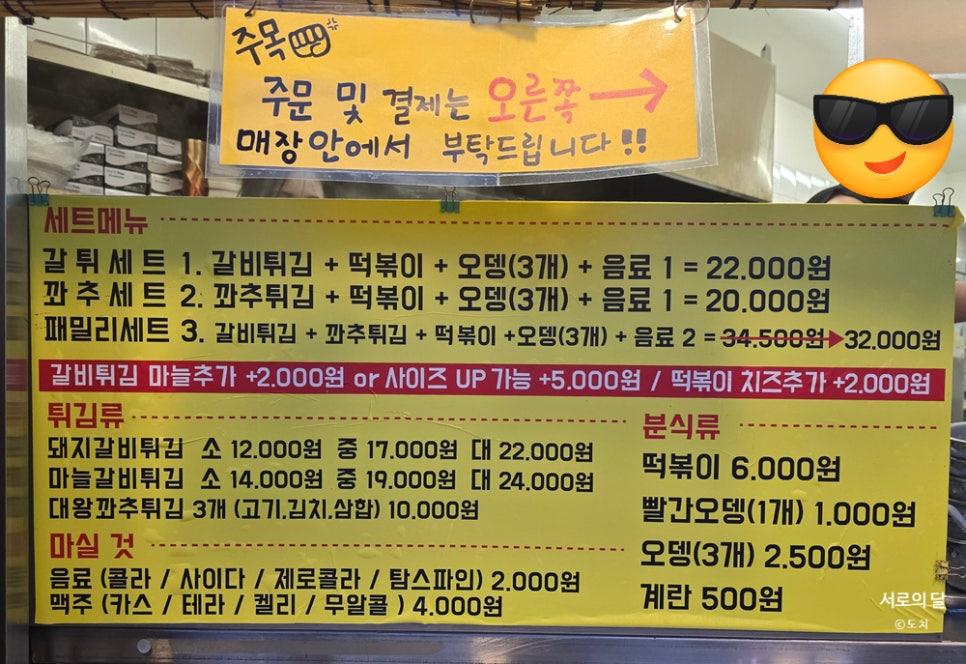 주목
주문 및 결제는 오른쪽 →
매장안에서 부탁드립니다!!
세트메뉴
갈튀세트 1. 갈비튀김 + 떡볶이 + 오뎅(3개) + 음료 1 = 22.000원
꽈추세트 2. 꽈추튀김 + 떡볶이 + 오뎅(3개) + 음료 1 = 20.000원
패밀리세트 3. 갈비튀김 + 꽈추튀김 + 떡볶이 +오뎅(3개) + 음료 2 = 34.500원▶32.000원
갈비튀김 마늘추가 +2.000원 or 사이즈 UP 가능 +5.000원 / 떡볶이 치즈추가 +2.000원
튀김류
돼지갈비튀김 소 12.000원 중 17.000원 대 22.000원
마늘갈비튀김 소 14.000원 중 19.000원 대 24.000원
대왕꽈추튀김 3개 (고기.김치.삼합) 10.000원
마실 것
음료 (콜라 / 사이다 / 제로콜라 / 탐스파인) 2.000원
맥주 (카스 / 테라 / 켈리 / 무알콜 ) 4.000원
분식류
떡볶이 6.000원
빨간오뎅(1개) 1.000원
오뎅(3개) 2.500원
계란 500원
서로의 달
©도치